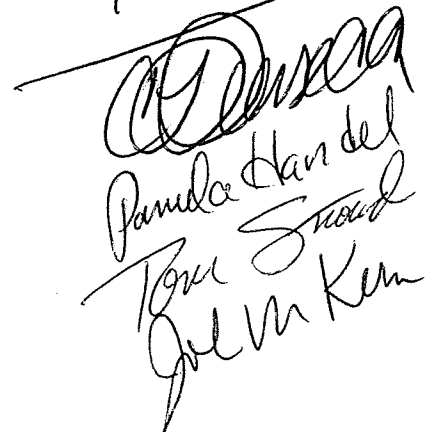 Pamela Handel
Tom Stroud
Joe M Kern